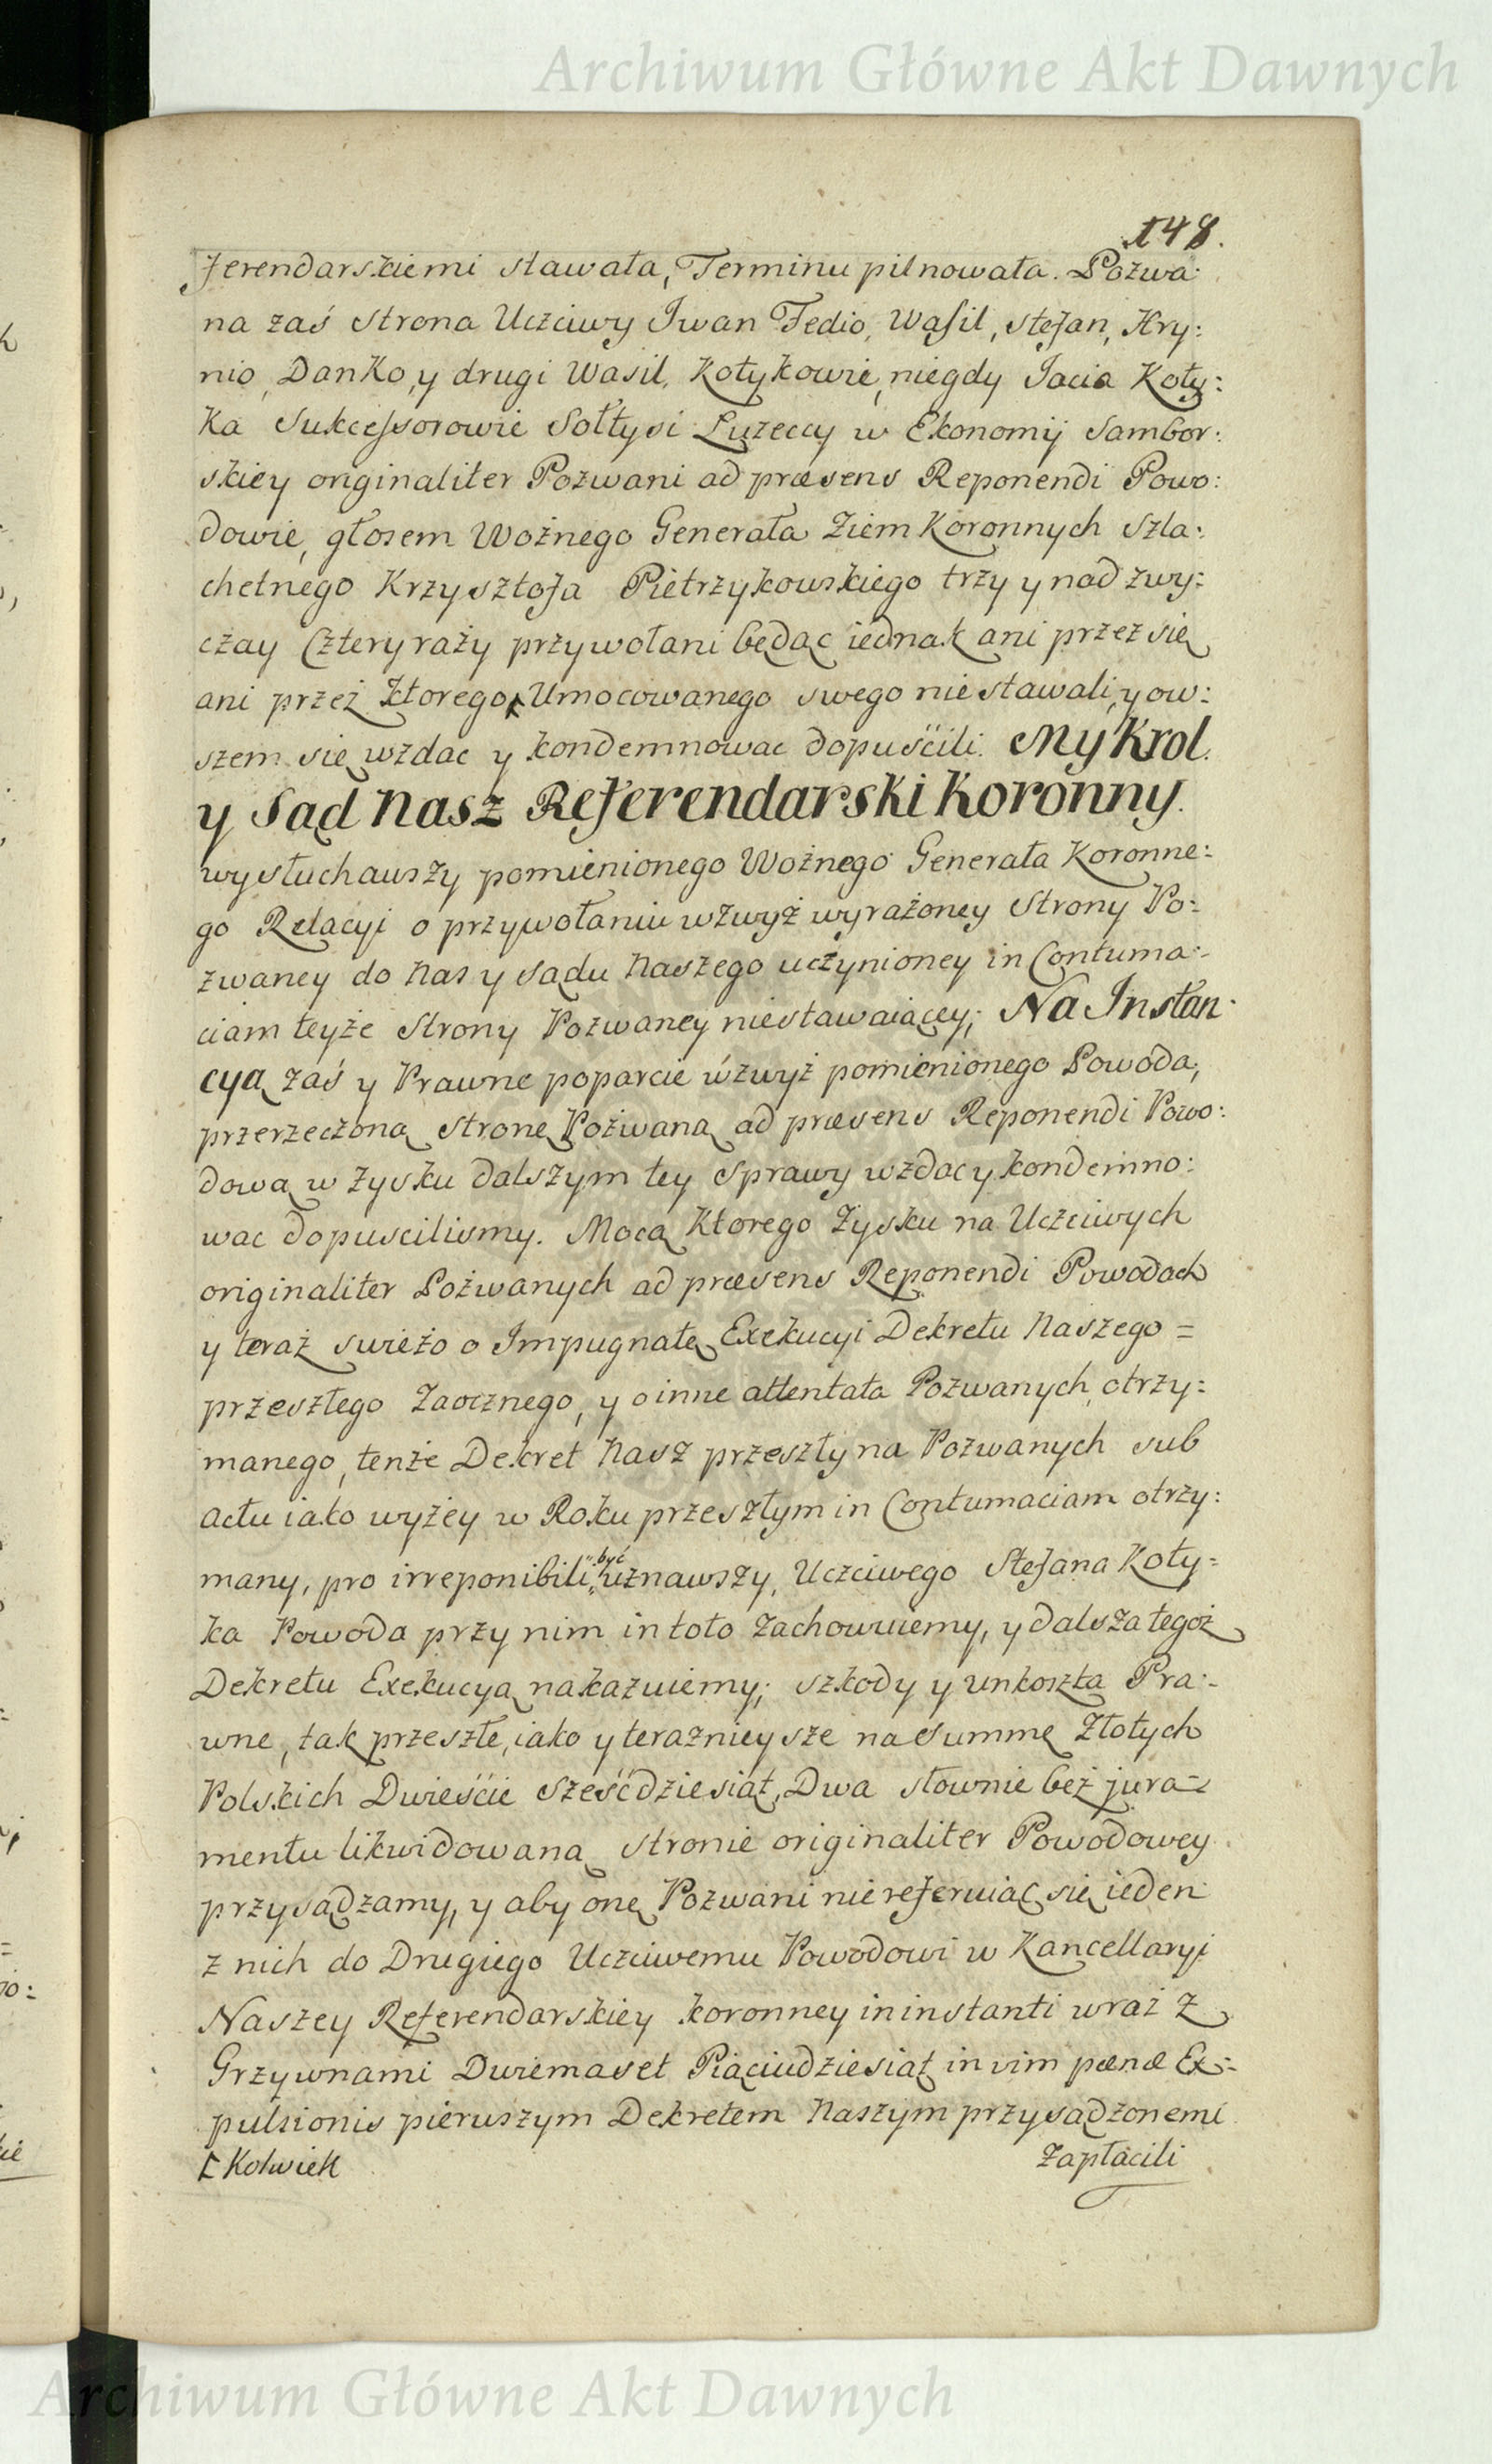 Archiwum Główne Akt Dawnych
148.
ferendarskiemi stawała, Terminu pilnowała. Pozwa:
na zaś Strona Uczciwy Iwan Fedio, Wasil, Stefan, Hry:
nio, Danko, y drugi Wasil, Kotykowie, niegdy Jacia Koty:
ka Sukcessorowie Sołtysi Łuzeccy w Ekonomij Sambor:
skiey originaliter Pozwani ad præsens Reponendi Powo:
dowie, głosem Woźnego Generała Ziem Koronnych Szla:
chetnego Krzysztofa Pietrzykowskiego trzy y nad zwy:
czay Cztery raży przywołani będąc iednak ani przez się
ani przeż ktorego Umocowanego swego nie stawali, y ow:
szem się wzdac y kondemnowac dopuścili. My Krol
y Sąd Nasz Referendarski Koronny.
wysłuchawszy pomienionego Woźnego Generała Koronne:
go Relacyi o przywołaniu wzwyż wyrażoney Strony Po:
zwaney do Nas y Sądu Naszego uczynioney in Contuma:
ciam teyże Strony Pozwaney niestawaiącey; Na Instan
cyą zaś y Prawne poparcie wzwyż pomienionego Powoda,
przerzeczoną Stronę Pozwaną ad præsens Reponendi Powo:
dową w Zysku dalszym tey Sprawy wzdac y kondemno:
wac dopuscilismy. Mocą Ktorego Zysku na Uczciwych
originaliter Pożwanych ad præsens Reponendi Powodach
y teraż swieżo o Impugnatę Exekucyi Dekretu Naszego =
przeszłego Zaocznego, y o inne attentata Pozwanych otrzy:
manego, tenże Dekret Nasz przeszły na Pozwanych sub
actu iako wyżey w Roku przeszłym in Contumaciam otrzy:
many, pro irreponibili być uznawszy, Uczciwego Stefana Koty:
ka Powoda przy nim in toto Zachowuiemy, y dalszą tegoż
Dekretu Exekucyą nakazuiemy; szkody y unkoszta Pra:
wne, tak przeszłe, iako y teraznieysze na Summę Złotych
Polskich Dwieście Sześćdziesiąt Dwa słownie beż jura=
mentu likwidowaną stronie originaliter Powodowey
przysądzamy, y aby onę Pozwani nie referuiąc się ieden
z nich do Drugiego Uczciwemu Powodowi w Kancellaryi
Naszey Referendarskiey koronney in instanti wraż z
Grzywnami Dwiemaset Piąciudziesiąt in vim pænæ Ex:
pulsionis pierwszym Dekretem Naszym przysądzonemi
Kolwiek
zapłacili
Archiwum Główne Akt Dawnych